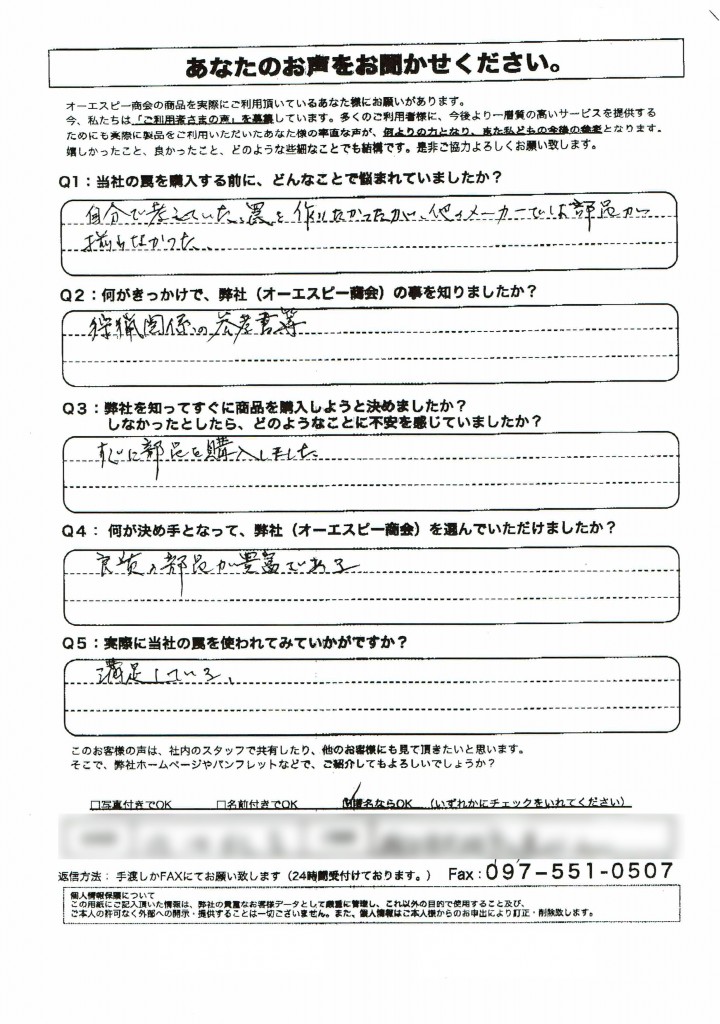 あなたのお声をお聞かせください。
オーエスピー商会の商品を実際にご利用頂いているあなた様にお願いがあります。
今、私たちは「ご利用者さまの声」を募集しています。多くのご利用者様に、今後より一層質の高いサービスを提供する
ためにも実際に製品をご利用いただいたあなた様の率直な声が、何よりの力となり、また私どもの今後の糧となります。
嬉しかったこと、良かったこと、どのような些細なことでも結構です。是非ご協力よろしくお願い致します。
Q1：当社の罠を購入する前に、どんなことで悩まれていましたか？
自分で考えていた罠を作りたかったが、他のメーカーでは部品が
揃わなかった。
Q2：何がきっかけで、弊社（オーエスピー商会）の事を知りましたか？
狩猟関係の参考書等
Q3：弊社を知ってすぐに商品を購入しようと決めましたか？
しなかったとしたら、どのようなことに不安を感じていましたか？
すぐに部品を購入しました
Q4： 何が決め手となって、弊社（オーエスピー商会）を選んでいただけましたか？
良質の部品が豊富である
Q5：実際に当社の罠を使われてみていかがですか？
満足している。
このお客様の声は、社内のスタッフで共有したり、他のお客様にも見て頂きたいと思います。
そこで、弊社ホームページやパンフレットなどで、ご紹介してもよろしいでしょうか？
□写真付きでOK □名前付きでOK ☑匿名ならOK （いずれかにチェックをいれてください）
返信方法： 手渡しかFAXにてお願い致します（24時間受付けております。） Fax：097-551-0507
個人情報保護について
この用紙にご記入頂いた情報は、弊社の貴重なお客様データとして厳重に管理し、これ以外の目的で使用すること及び、
ご本人の許可なく外部への開示・提供することは一切ございません。また、個人情報はご本人様からのお申出により訂正・削除致します。